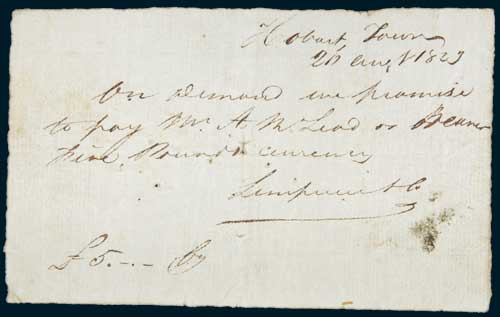 Hobart Town
20 Augt 1823
On demand we promise
to pay Mr A McLeod or Bearer
five Pounds currency
£5.-.- Cy